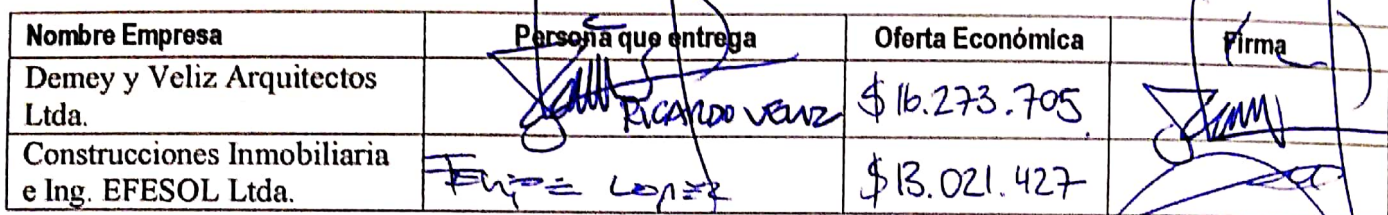 Nombre Empresa Persona que entrega Oferta Económica Firma
Demey y Veliz Arquitectos
Ltda. RICARDO VELIZ $ 16.273.705
Construcciones Inmobiliaria
e Ing. EFESOL Ltda. Felipe Lopez $ 13.021.427